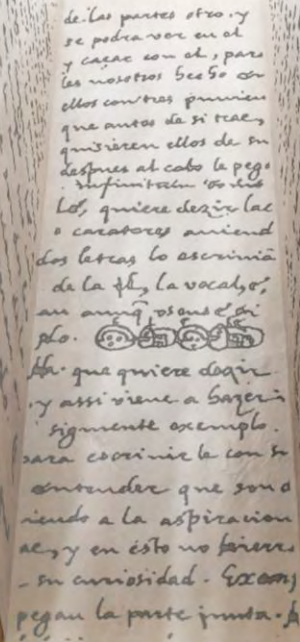 de las partes otro. y
se podra ver en el
y caçar con el, para
les nosotros hecho en
ellos con tres punien
que antes de si trae,
quisieren ellos de su
despues al cabo le pega
infinitum
Lé, quiere dezir laç
carateres aviend
dos letras lo escriviã
de la l, la vocal, é,
aunq̃ usense si
plo.
Ha. que quiere dezir
y assi viene a hazer
siguiente exemplo.
para escrivir le con su
entender que son
niendo a la aspiracion
y en esto no hierra
su curiosidad. Exem
pegan la parte junta.